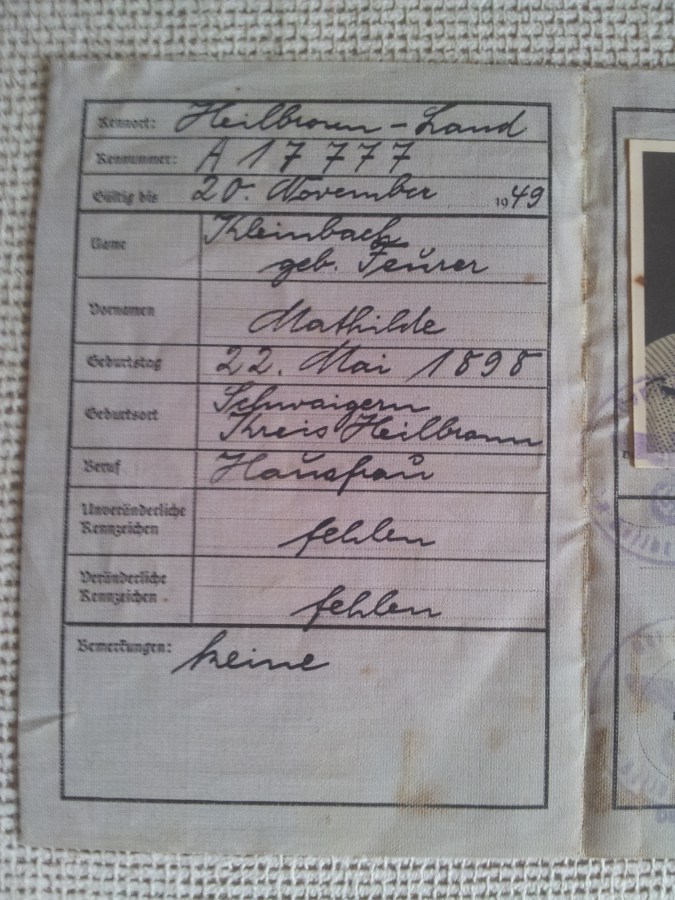 Kennort: Heilbronn-Land
Kennummer: A 17777
Gültig bis 20. November 1949
Name Kleinbach
geb. Feurer
Vornamen Mathilde
Geburtstag 22. Mai 1898
Geburtsort Schwaigern
Kreis Heilbronn
Beruf Hausfrau
Unveränderliche
Kennzeichen fehlen
Veränderliche
Kennzeichen fehlen
Bemerkungen: keine